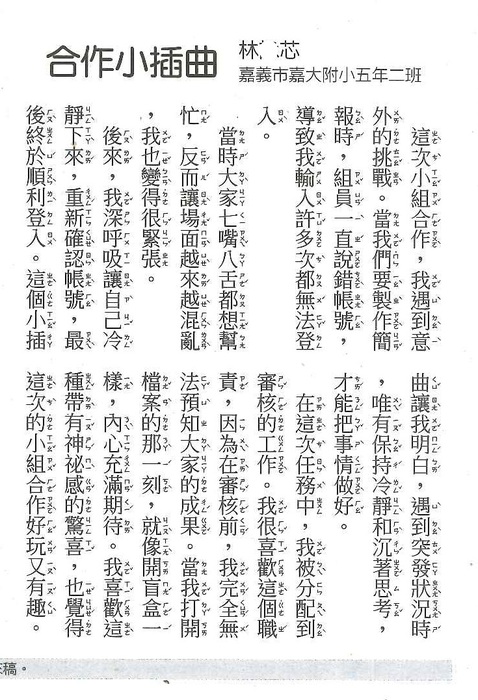 合作小插曲
林 芯
嘉義市嘉大附小五年二班
這次小組合作，我遇到意
外的挑戰。當我們要製作簡
報時，組員一直說錯帳號，
導致我輸入許多次都無法登
入。
當時大家七嘴八舌都想幫
忙，反而讓場面越來越混亂
，我也變得很緊張。
後來，我深呼吸讓自己冷
靜下來，重新確認帳號，最
後終於順利登入。這個小插
曲讓我明白，遇到突發狀況時
，唯有保持冷靜和沉著思考，
才能把事情做好。
在這次任務中，我被分配到
審核的工作。我很喜歡這個職
責，因為在審核前，我完全無
法預知大家的成果。當我打開
檔案的那一刻，就像開盲盒一
樣，內心充滿期待。我喜歡這
種帶有神祕感的驚喜，也覺得
這次的小組合作好玩又有趣。
稿。